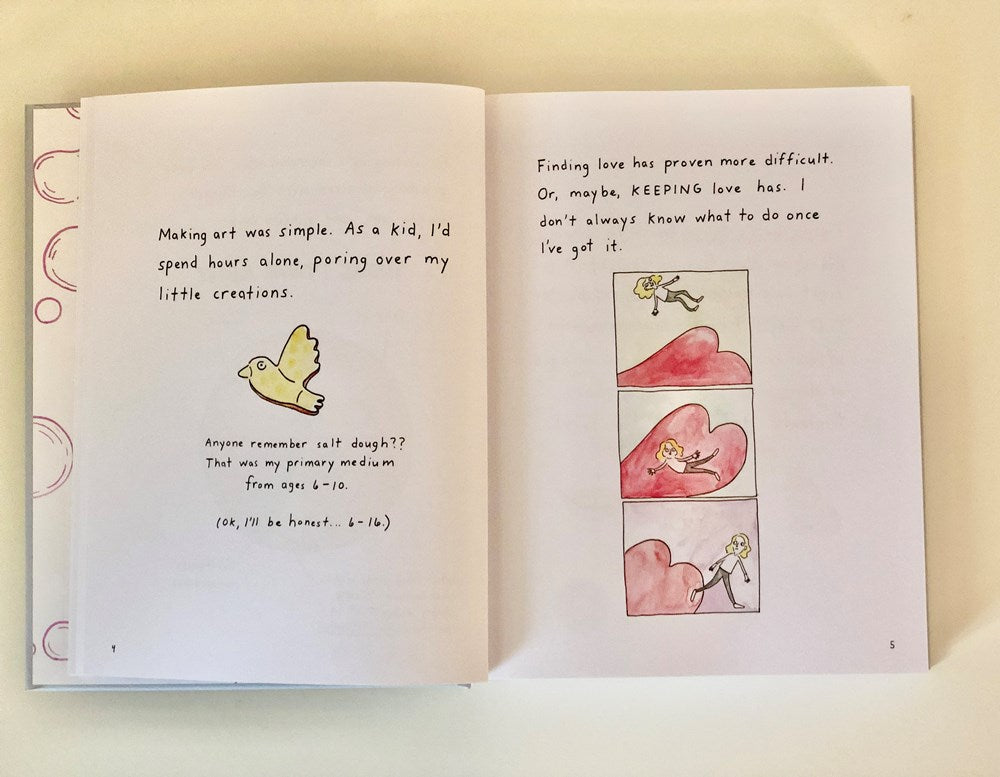 Making art was simple. As a kid, I'd
spend hours alone, poring over my
little creations.
Anyone remember salt dough??
That was my primary medium
from ages 6-10.
(Ok, I'll be honest... 6-16.)
4
Finding love has proven more difficult.
Or, maybe, KEEPING love has. I
don't always know what to do once
I've got it.
5